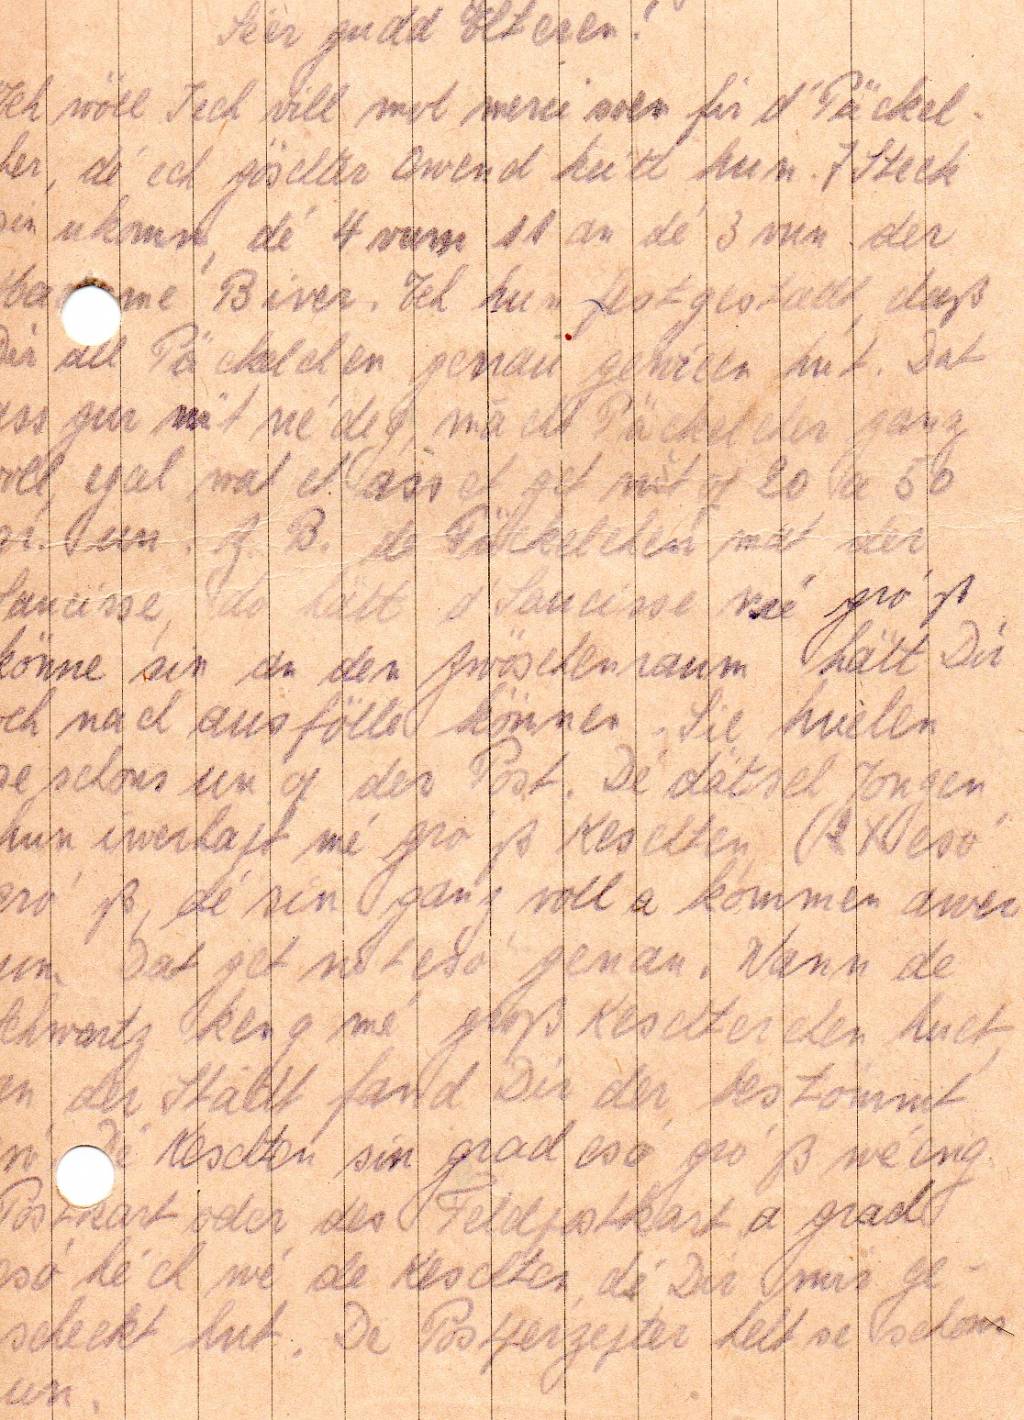 Léer gudd Elteren!
Ech wöll Iech vill mol merci soen fir d'Päckel-
cher, dé ech göschter Owend kritt hun. 7 Steck
sin ukomm, dé 4 vum 11 an dé 3 vun der
Biver. Ech hun festgestallt, daß
Dir all Päckelchen genau gewien hut. Dat
ass gur nöt nédeg, mächt Päckelcher ganz
voll, egal wat et ass et get nöt op 20 a 50
gr. un. Z. B. de Päckelchen mat der
Saucisse, do hätt d'Saucisse mé gróß
könne sin an den Zwöschenraum hätt Dir
och nach ausfölle können. Sie huelen
se schons un op der Post. Dé dätsch Jongen
hun iwerhapt mé gróß Keschten (2 X esó
gró ß, dé sin ganz voll a kommen awer
un. Dat get nöt esó genau. Wann de
Schwartz keng mé gróß Keschtercher huet,
an der Stadt fand Dir der bestömmt
Dé Keschten sin grad esó gró ß wé eng
Postkart oder des Feldpostkart a grad
esó héch wé de Keschten, dé Dir mir ge-
scheckt hut. De Postferzejter helt se schons
un.